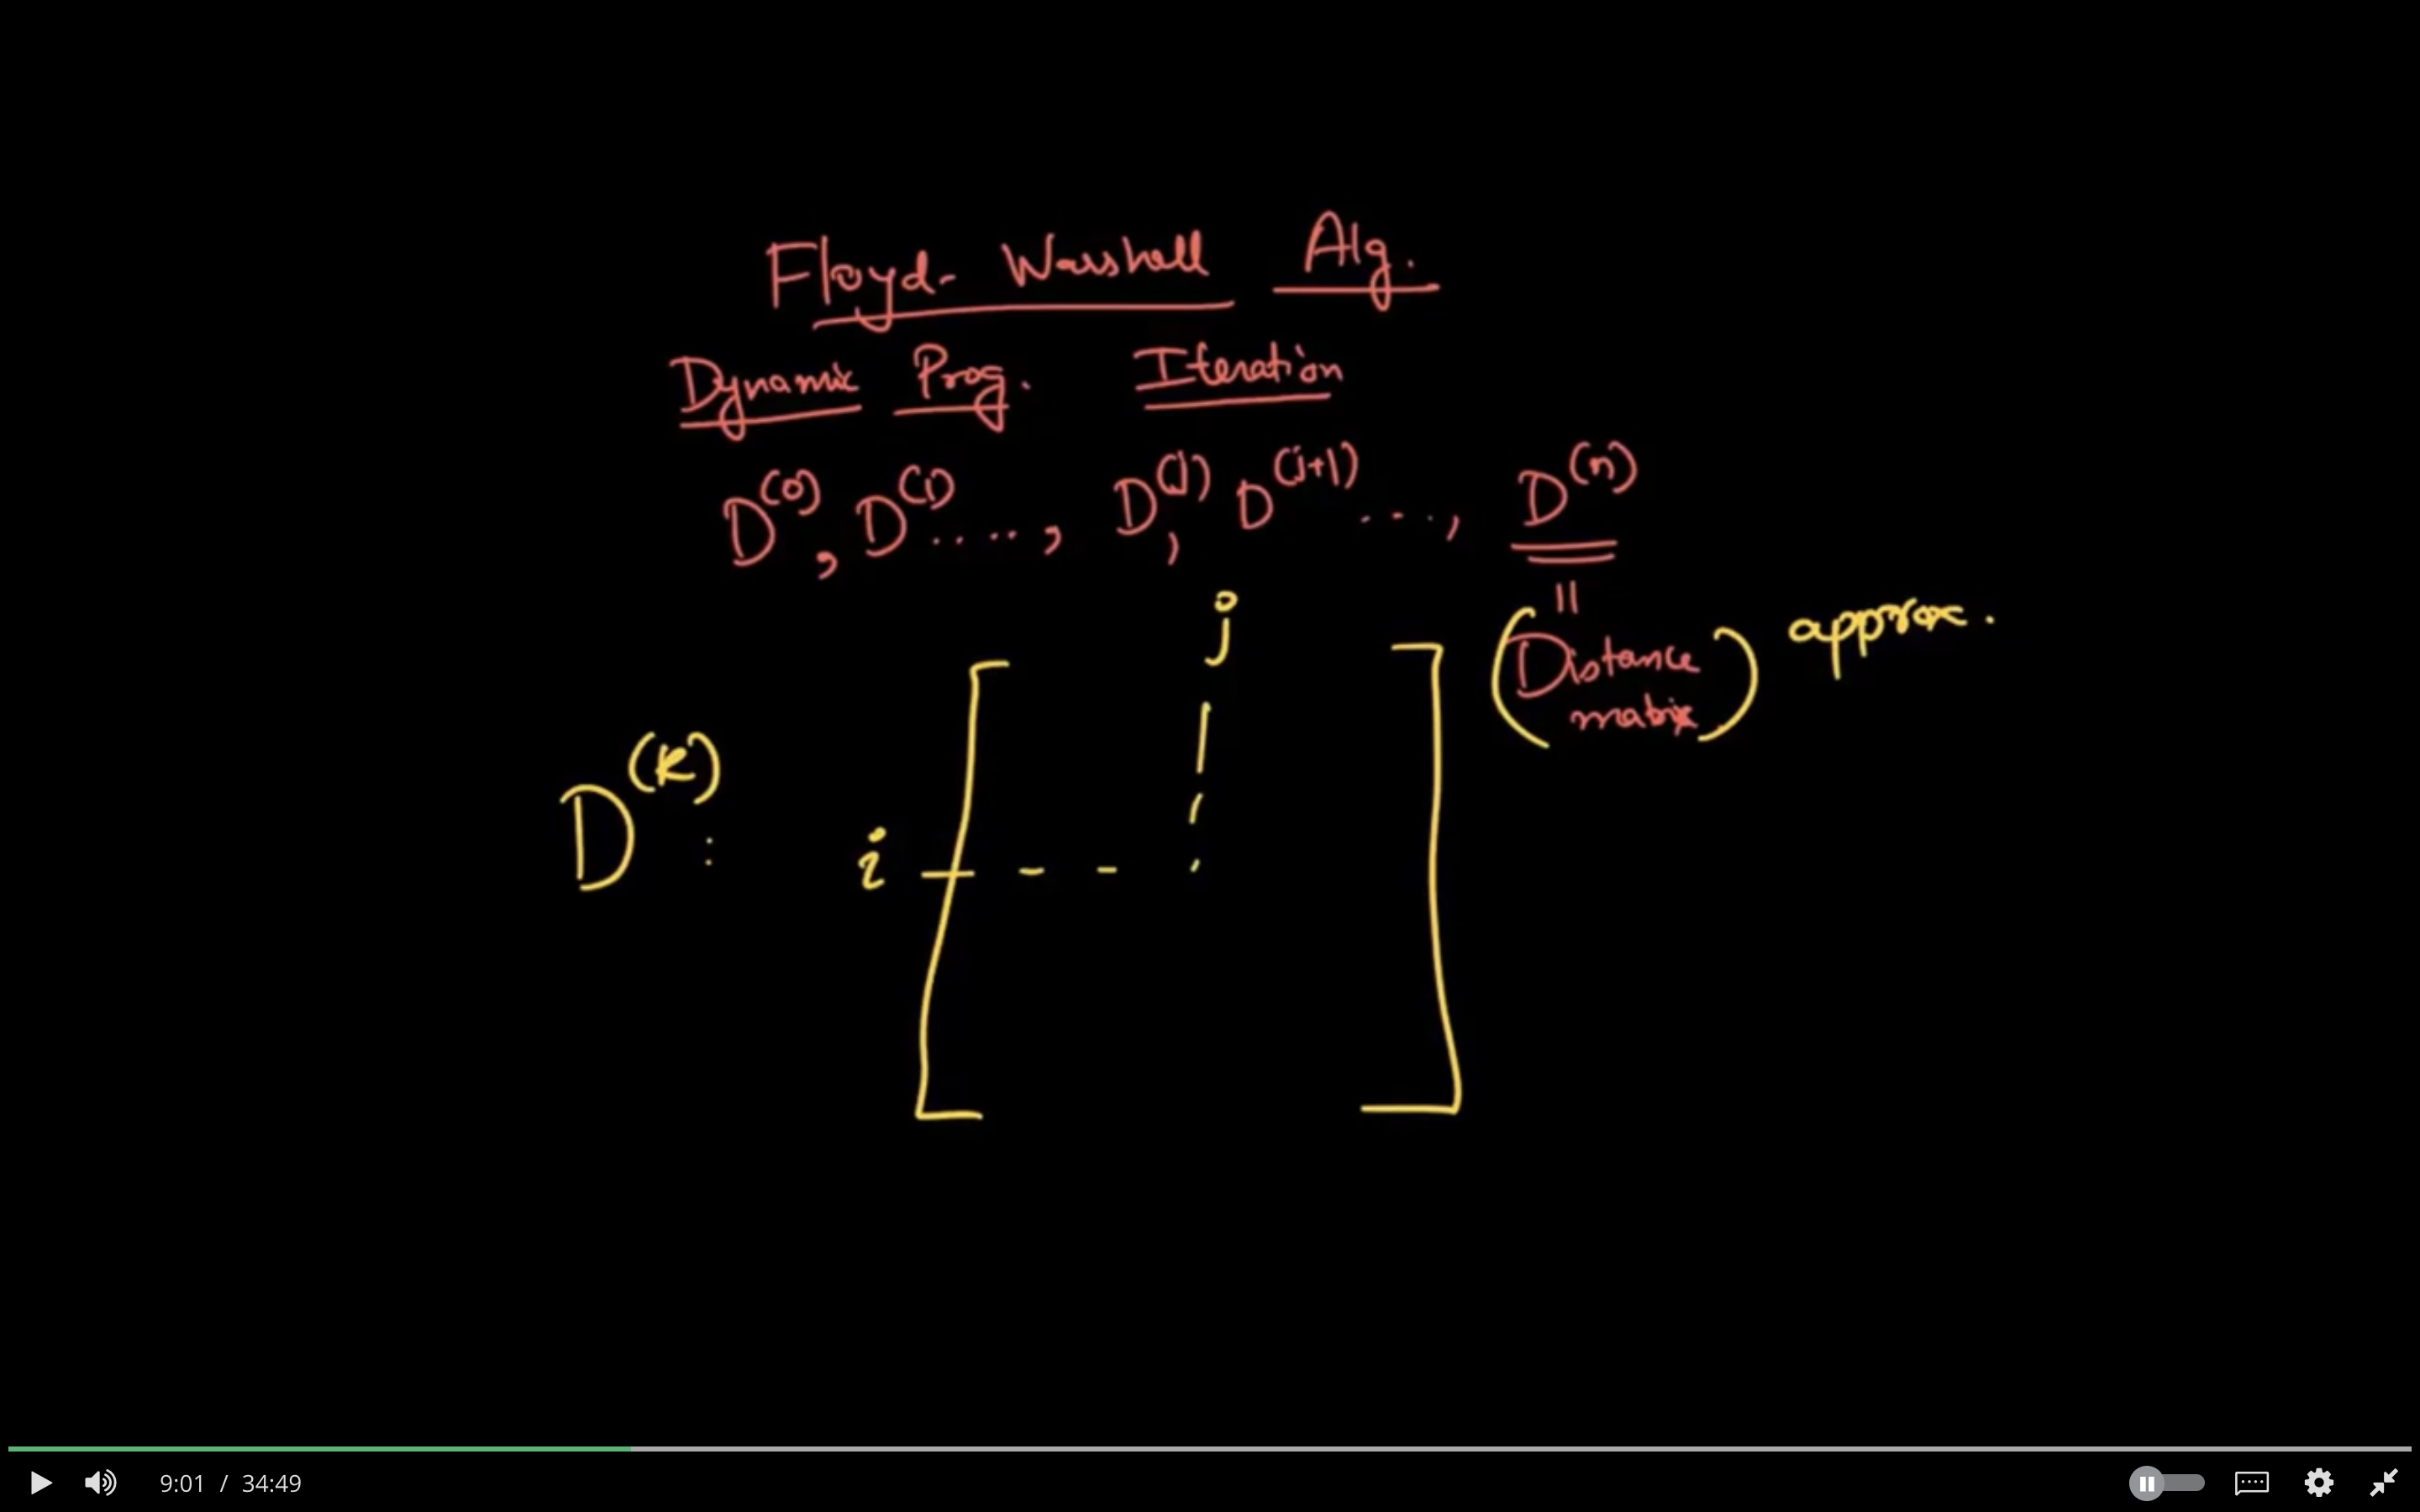 Floyd- Warshall Alg.
Dynamic Prog. Iteration
D^(0), D^(1)...., D^(j), D^(j+1)..., D^(n)
=
j
(Distance matrix) approx.
D^(k) :
i
9:01 / 34:49